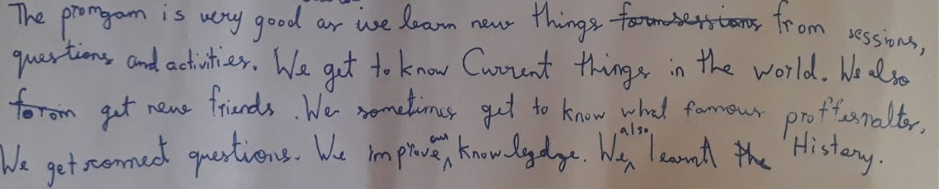 The promgam is very good as we learn new things from sessions,
questions and activities. We get to know Current things in the world. We also
get new friends. We sometimes get to know what famous
We get connect questions. We improve our knowlegdge. We also learnt the History.